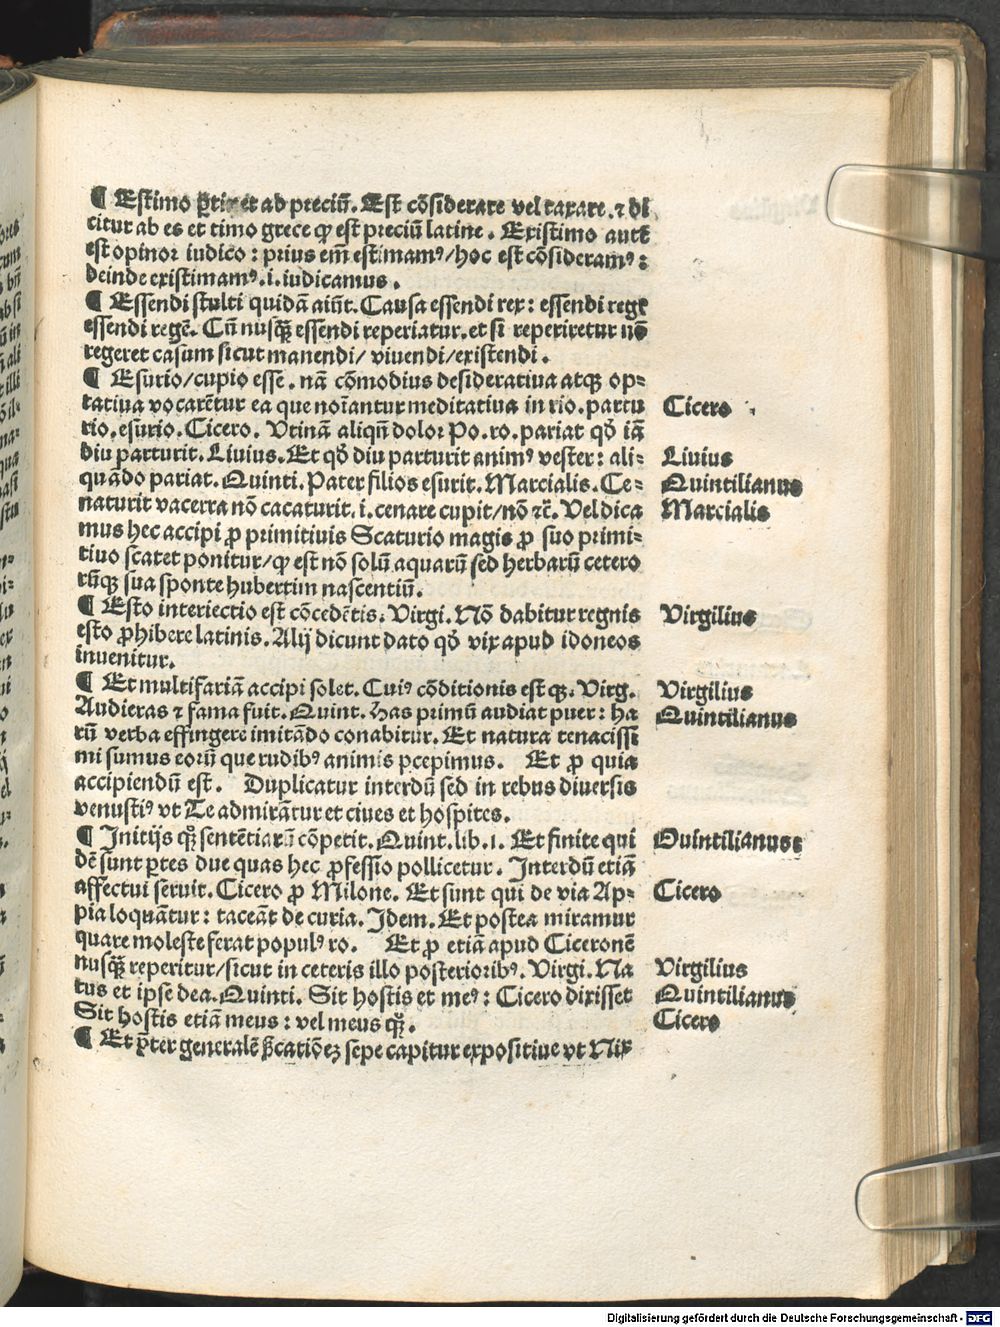 ¶ Estimo ꝑtinet ab preciū. Est cōsiderare vel taxare. ⁊ di
citur ab es et timo grece qꝫ est preciū latine. Existimo autē
est opinor iudico: prius em̄ estimamꝰ/hoc est cōsideramꝰ:
deinde existimamꝰ.i.iudicamus.
¶ Essendi stulti quidā aiūt. Causa essendi rex: essendi regē
essendi regē. Cū nusꝙ̄ essendi reperiatur.et si reperiretur nō
regeret casum sicut manendi/ viuendi/existendi.
¶ Esurio/cupio esse. nā cōmodius desideratiua atqꝫ op⸗
tatiua vocarētur ea que noīantur meditatiua in rio.partu
rio.esurio.Cicero. Vtinā aliqn̄ dolor Po.ro.pariat qō iā
diu parturit. Liuius. Et qō diu parturit animꝰ vester: ali⸗
quādo pariat. Quinti. Pater filios esurit. Marcialis. Ce⸗
naturit vacerra nō cacaturit.i.cenare cupit/nō ⁊c̄. Vel dica
mus hec accipi ꝓ primitiuis Scaturio magis ꝓ suo primi⸗
tiuo scatet ponitur/qꝫ est nō solū aquarū sed herbarū cetero
rūqꝫ sua sponte hubertim nascentiū.
¶ Esto interiectio est cōcedētis. Virgi. Nō dabitur regnis
esto ꝓhibere latinis. Alij dicunt dato qō vix apud idoneos
inuenitur.
¶ Et multifariā accipi solet. Cuiꝰ cōditionis est qꝫ. Virg.
Audieras ⁊ fama fuit. Quint. has primū audiat puer: ha
rū verba effingere imitādo conabitur. Et natura tenacissi
mi sumus eorū que rudibꝰ animis pcepimus. Et ꝓ quia
accipiendū est. Duplicatur interdū sed in rebus diuersis
venustiꝰ vt Te admirātur et ciues et hospites.
¶ Initijs qꝫ̄ sentētiarū cōpetit. Quint. lib. 1. Et finite qui
dē sunt ꝑtes due quas hec ꝓfessio pollicetur. Interdū etiā
affectui seruit. Cicero ꝓ Milone. Et sunt qui de via Ap⸗
pia loquātur: taceāt de curia. Idem. Et postea miramur
quare moleste ferat populꝰ ro. Et ꝓ etiā apud Ciceronē
nusꝙ̄ reperitur/sicut in ceteris illo posterioribꝰ. Virgi. Na
tus et ipse dea. Quinti. Sit hostis et meꝰ: Cicero dixisset
Sit hostis etiā meus: vel meus qꝫ̄.
¶ Et p̄ter generalē sepe capitur expositiue vt Nix
Cicero
Liuius
Quintilianus
Marcialis
Virgilius
Virgilius
Quintilianus
Quintilianus
Cicero
Virgilius
Quintilianus
Cicero
Digitalisierung gefördert durch die Deutsche Forschungsgemeinschaft - DFG